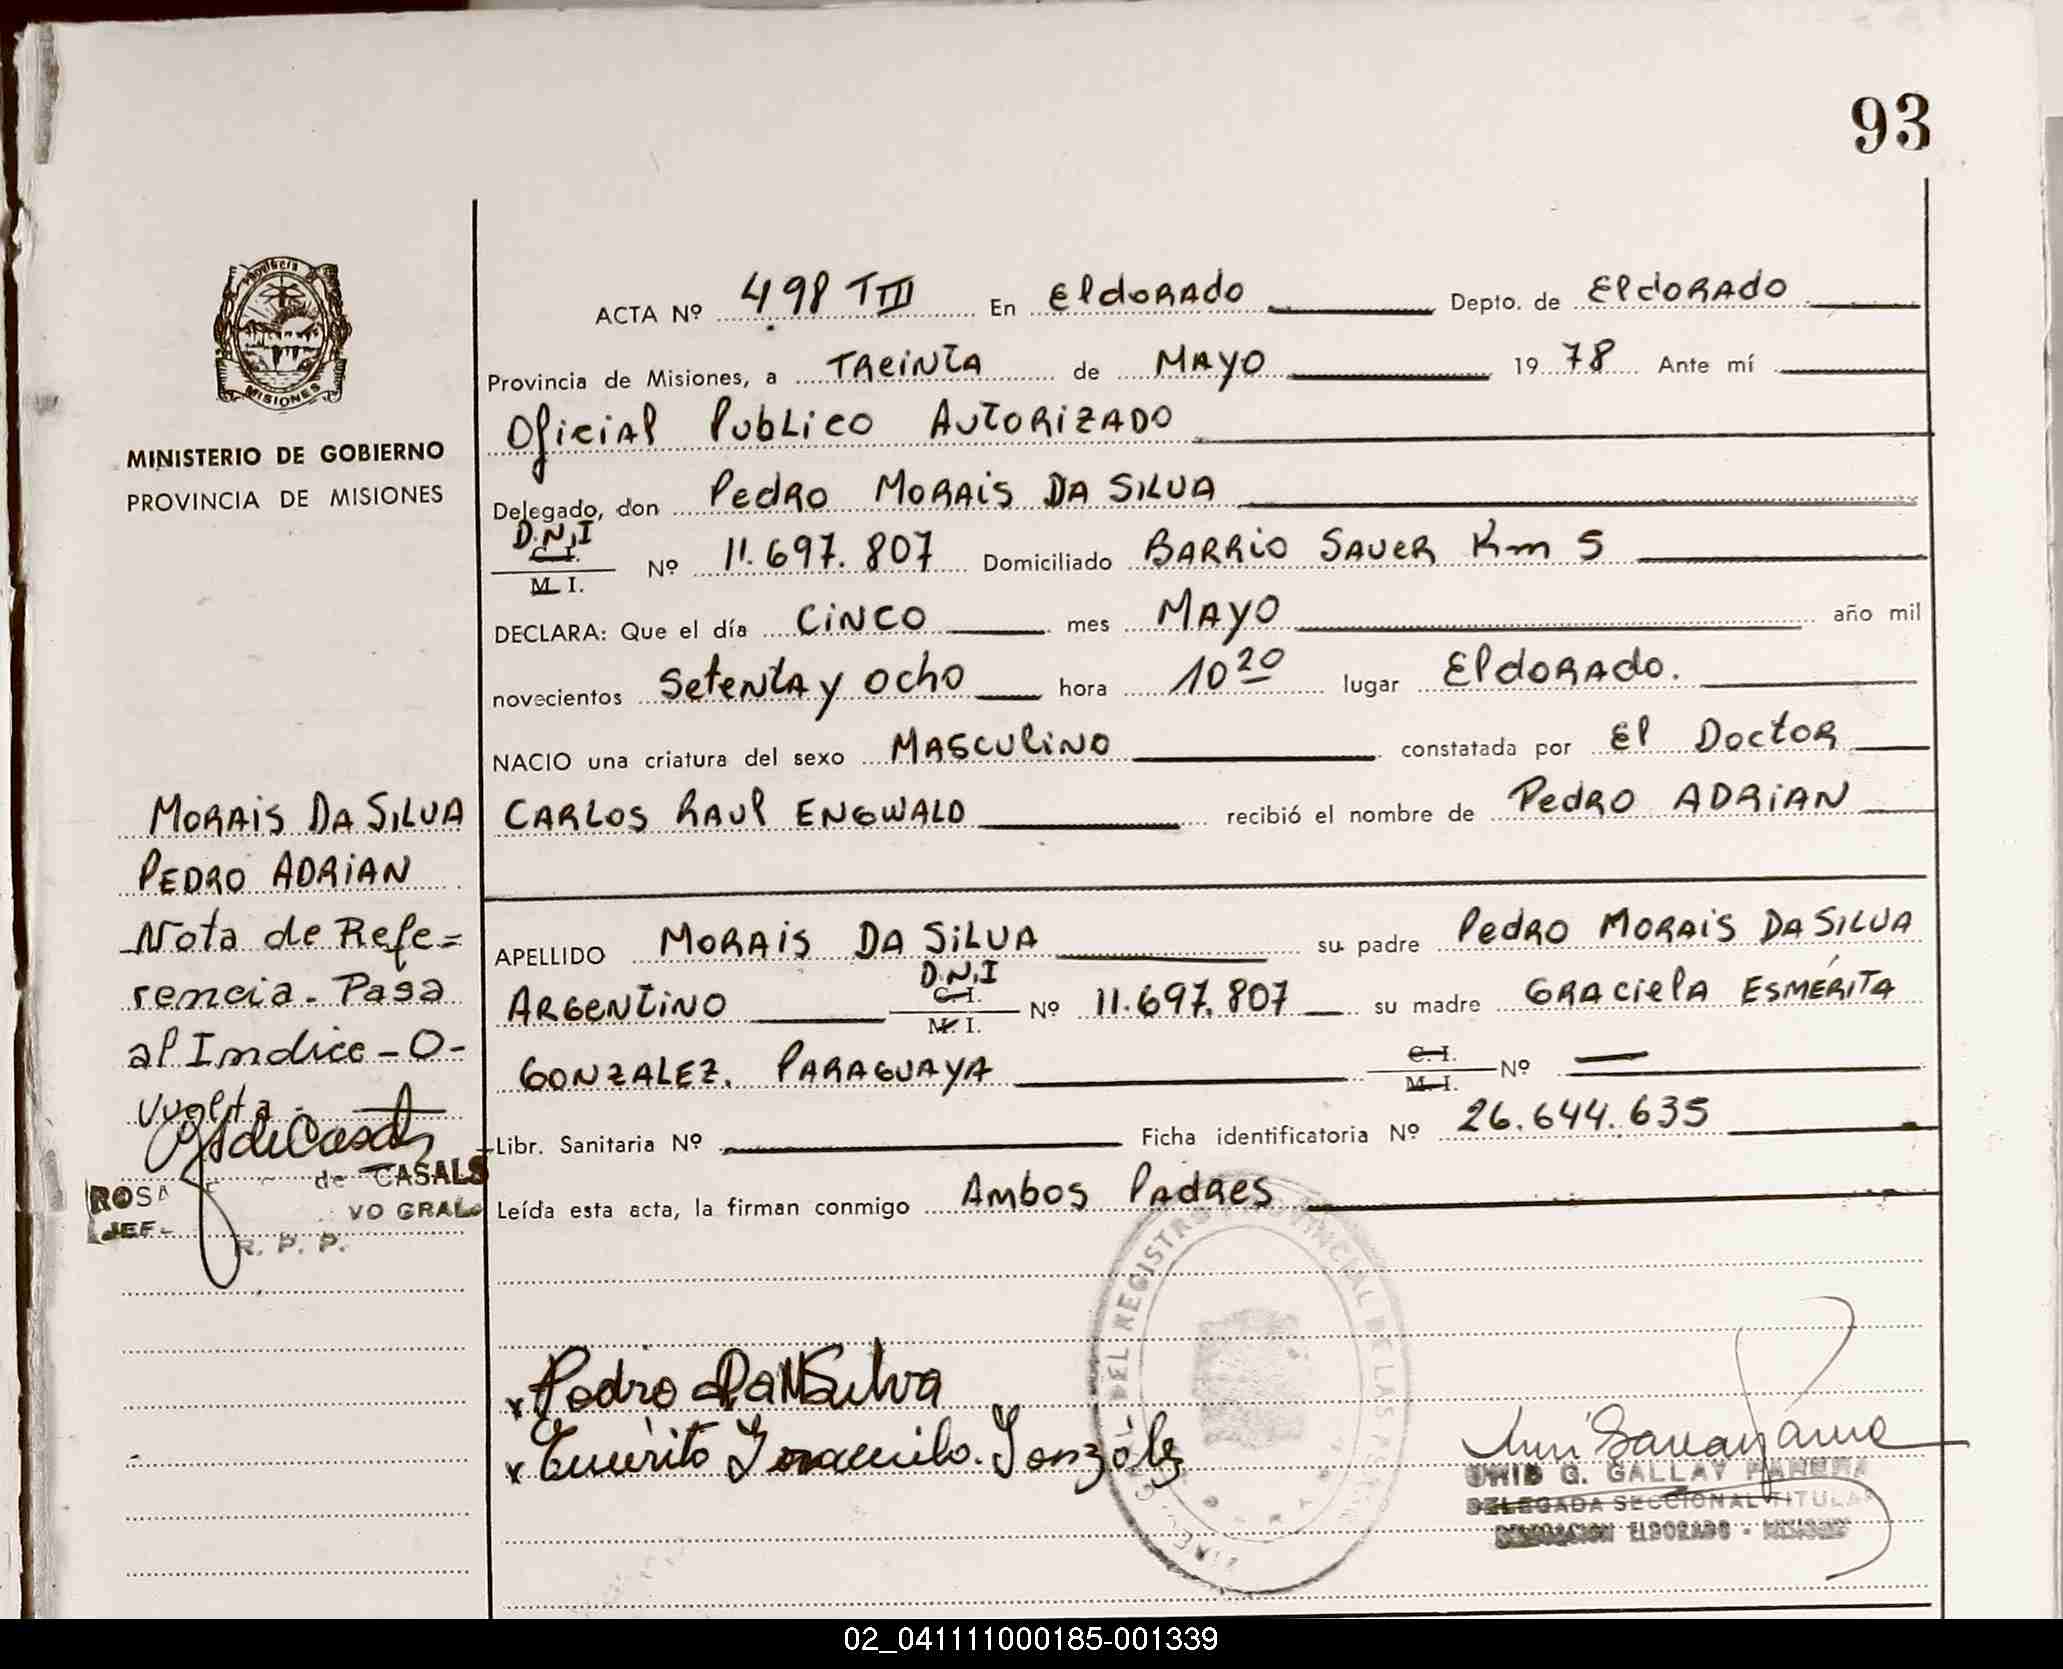 93
MISIONES
MINISTERIO DE GOBIERNO
PROVINCIA DE MISIONES
ACTA Nº 498 TIII En Eldorado Depto. de Eldorado
Provincia de Misiones, a Treinta de Mayo 1978 Ante mí
Oficial Publico Autorizado
Delegado, don Pedro Morais Da Silva
D.N.I
C. I.
M. I.
Nº 11.697.807 Domiciliado Barrio Sauer Km 5
DECLARA: Que el día Cinco mes Mayo año mil
novecientos Setenta y ocho hora 10 20 lugar Eldorado.
NACIO una criatura del sexo Masculino constatada por El Doctor
Carlos Raul Engwald recibió el nombre de Pedro Adrian
APELLIDO Morais Da Silva su padre Pedro Morais Da Silva
D.N.I
C. I.
M. I.
Argentino Nº 11.697.807 su madre Graciela Esmérita
Gonzalez. Paraguaya C. I. M. I. Nº —
Libr. Sanitaria Nº Ficha identificatoria Nº 26.644.635
Leída esta acta, la firman conmigo Ambos Padres
Morais Da Silva
Pedro Adrian
Nota de Refe=
rencia. Pasa
al Indice-O-
Vuelta.
ROSA de CASALS
JEF
VO GRAL
R. P. P.
x Pedro Da Silva
x González
DEL REGISTRO PROVINCIAL DE LAS
G. GALLAY
DELEGADA SECCIONAL TITULAR
DELEGACION ELDORADO - MISIONES
02_041111000185-001339